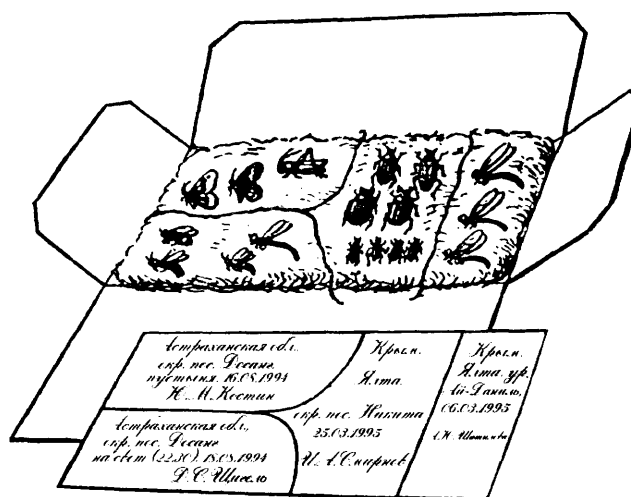 Астраханская обл.,
окр. пос. Досанг
пустыня. 16.08.1994
М. Костин
Астраханская обл.,
окр. пос. Досанг
на свет (22.30) 18.08.1994
Д. С. Щигель
Крым.
Ялта.
окр. пос. Никита
25.03.1995
И. А. Смирнов
Крым.
Ялта. ур.
Ай-Даниль,
06.03.1995